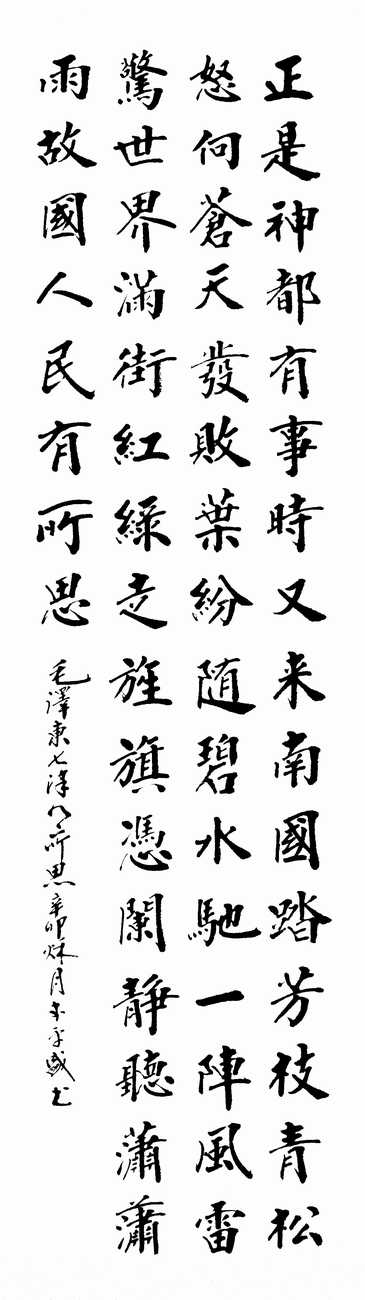 正是神都有事時又来南國踏芳枝青松
怒向蒼天發敗葉紛随碧水馳一陣風雷
驚世界滿街紅綠走旌旗憑闌靜聽瀟瀟
雨故國人民有所思
毛澤東七律有所思辛卯秋月